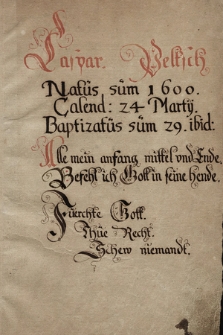 Caspar. Peltsch
Natus, sum 1600.
Calend: 24 Martÿ.
Baptizatus sum 29. ibid:
Alle mein anfang mittel vnd Ende,
Befehl ich Gott in seine hende.
Fürchte Gott.
Thue Recht.
Schew niemandt.